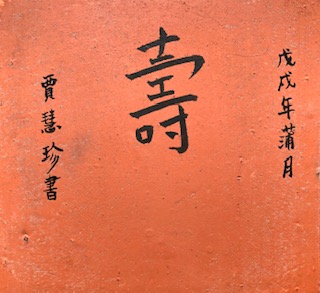 戊戌年蒲月
壽
賈慧珍書